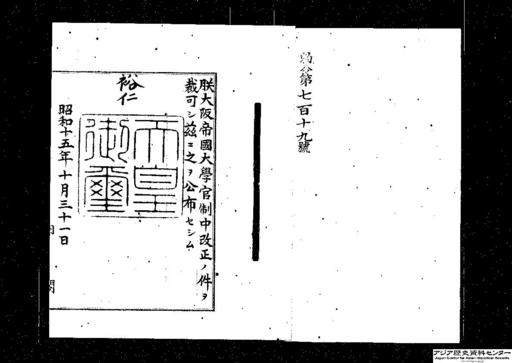 勅令第七百十九號
朕大阪帝國大學官制中改正ノ件ヲ
裁可シ茲ニ之ヲ公布セシム
裕仁
天皇
御璽
昭和十五年十月三十一日
内閣
アジア歴史資料センター
Japan Center for Asian Historical Records